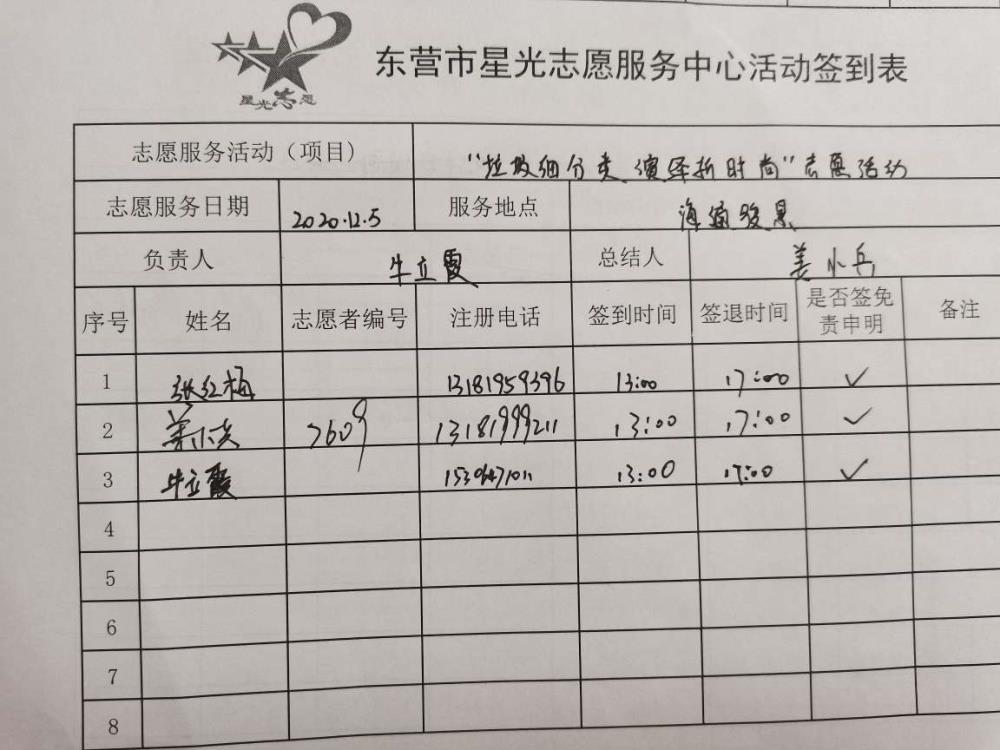 星光志愿
东营市星光志愿服务中心活动签到表
志愿服务活动（项目） “垃圾细分类 演绎新时尚”志愿活动
志愿服务日期 2020.12.5 服务地点 海通骏景
负责人 牛立霞 总结人 姜小兵
序号 姓名 志愿者编号 注册电话 签到时间 签退时间 是否签免责申明 备注
1 张红梅 13181959396 13:00 17:00 ✓
2 姜小兵 7609 13181999211 13:00 17:00 ✓
3 牛立霞 13:00 17:00 ✓
4
5
6
7
8